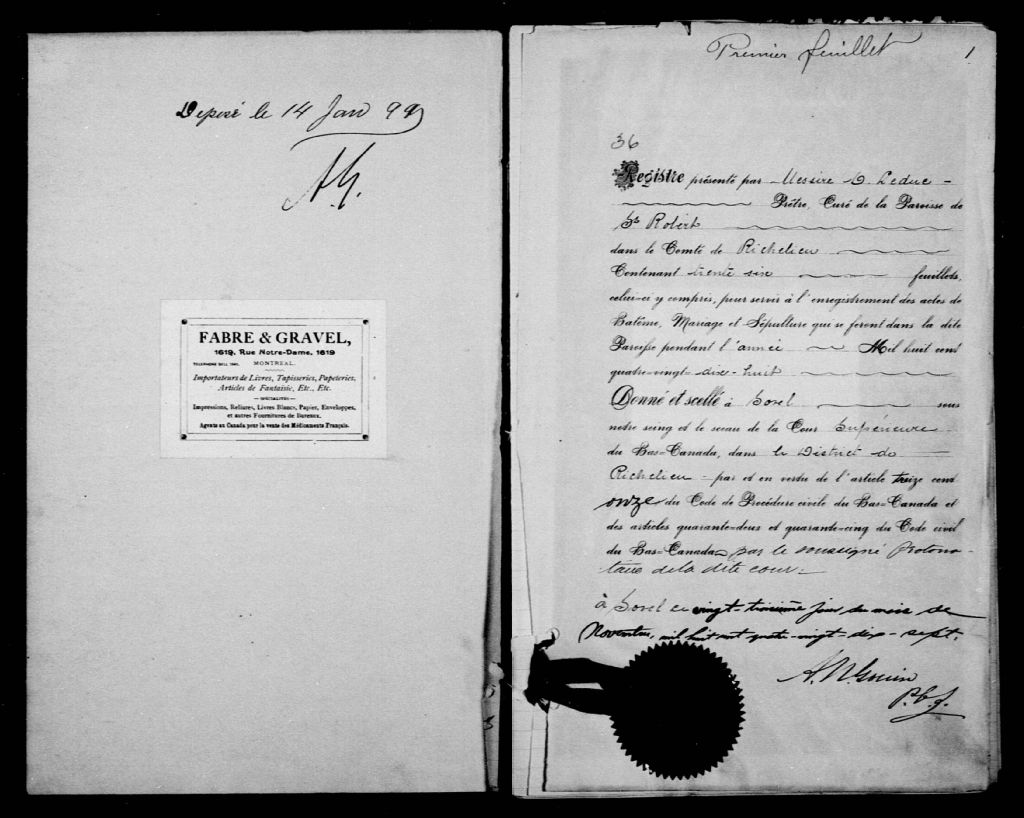 Déposé le 14 Jan 99
A.G.
FABRE & GRAVEL,
1619, Rue Notre-Dame, 1619
TELEPHONE BELL 1941. MONTREAL.
Importateurs de Livres, Tapisseries, Papeteries,
Articles de Fantaisie, Etc., Etc.
— SPÉCIALITÉS —
Impressions, Reliures, Livres Blancs, Papier, Enveloppes,
et autres Fournitures de Bureaux.
Agents au Canada pour la vente des Médicaments Français.
Premier feuillet 1
36
Registre présenté par Messire O. Leduc
Prêtre, Curé de la Paroisse de
St Robert
dans le Comté de Richelieu
Contenant trente six feuillets,
celui-ci y compris, pour servir à l'enregistrement des actes de
Batême, Mariage et Sépulture qui se feront dans la dite
Paroisse pendant l'année Mil huit cent
quatre-vingt-dix-huit
Donné et scellé à Sorel sous
notre seing et le sceau de la Cour Supérieure
du Bas-Canada, dans le District de
Richelieu - par et en vertu de l'article treize cent
onze du Code de Procédure civile du Bas-Canada et
des articles quarante-deux et quarante-cinq du Code civil
du Bas-Canada, par le soussigné Protono-
taire de la dite cour.
à Sorel ce vingt-troisième jour du mois de
Novembre, mil huit cent quatre-vingt-dix-sept.
A. N. Gouin
P.C.S.